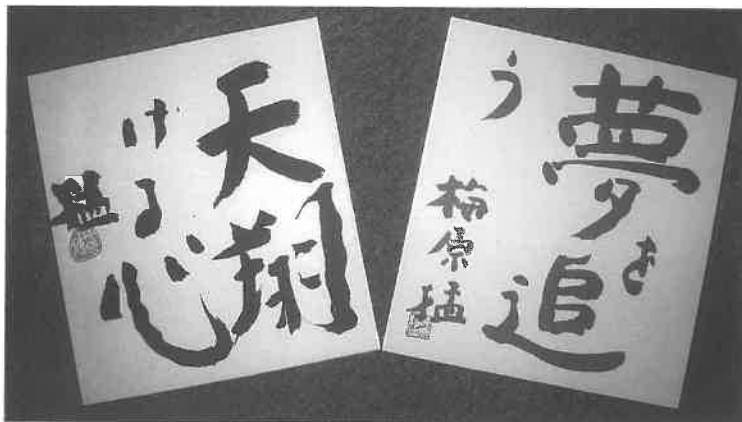 夢を追
う
梅原猛
天翔
ける心
猛